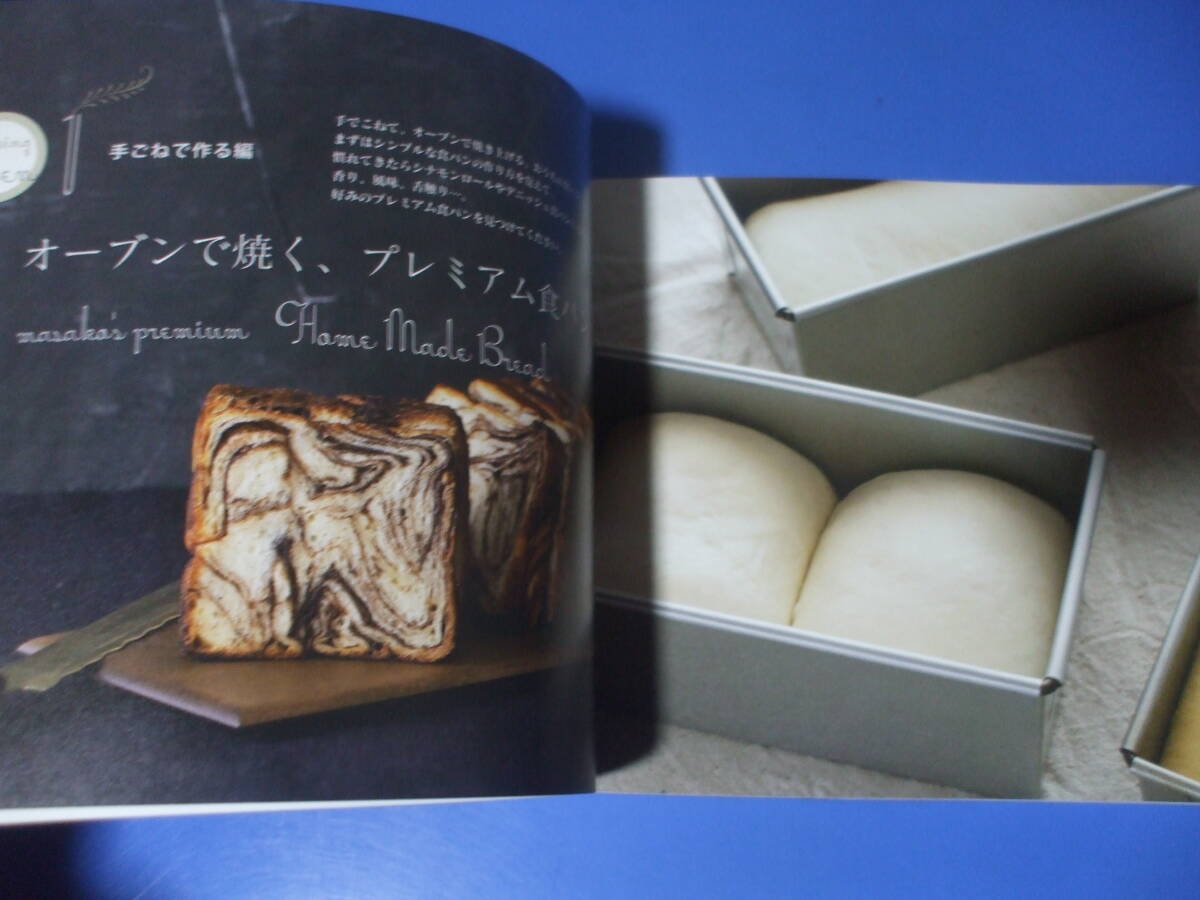 1
手ごねで作る編
手でこねて、オーブンで焼き上げる、
まずはシンプルな食パンの作り方を覚えて
慣れてきたらシナモンロールやデニッシュ
香り、風味、舌触り…。
好みのプレミアム食パンを見つけてください
オーブンで焼く、プレミアム食パ
masako's premium Home Made Bread